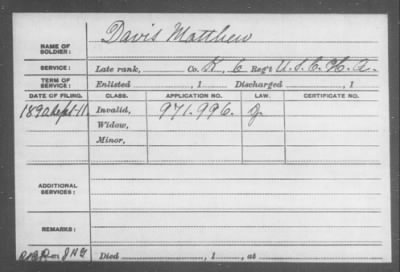 NAME OF SOLDIER: Davis Matthew
SERVICE: Late rank, Co. H, 6 Reg't U.S.C.H.A.
TERM OF SERVICE: Enlisted , 1 Discharged , 1
DATE OF FILING. CLASS. APPLICATION NO. LAW. CERTIFICATE NO.
1890 Sept 11. Invalid, 971.996. J.
Widow,
Minor,
ADDITIONAL SERVICES:
REMARKS:
Died , 1 , at